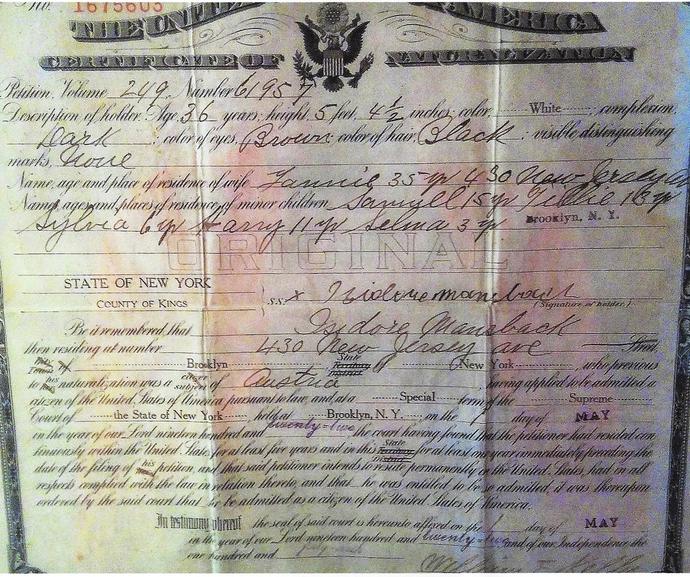 No. 1675605
THE UNITED STATES OF AMERICA
CERTIFICATE OF NATURALIZATION
Petition, Volume 249, Number 61957
Description of holder: Age, 36 years; height, 5 feet, 4 1/2 inches; color, White; complexion,
Dark; color of eyes, Brown; color of hair, Black; visible distinguishing
marks, None
Name, age and place of residence of wife Fannie 35 yr 430 New Jersey Av
Names, ages and places of residence of minor children Samuel 15 yr Tillie 13 yr
Sylvia 6 yr Harry 11 yr Selma 3 yr Brooklyn, N. Y.
ORIGINAL
STATE OF NEW YORK
COUNTY OF KINGS
s.s. x Isidore Mansbach
(Signature of holder.)
Be it remembered, that Isidore Mansback
then residing at number 430 New Jersey ave
Brooklyn State Territory New York, who previous
to his naturalization was a citizen subject of Austria, having applied to be admitted a
citizen of the United States of America pursuant to law, and, at a Special term of the Supreme
Court of the State of New York, held at Brooklyn, N. Y. on the day of MAY
in the year of our Lord nineteen hundred and twenty-two the court having found that the petitioner had resided con
tinuously within the United States for at least five years and in this State Territory for at least one year immediately preceding the
date of the filing of his petition, and that said petitioner intends to reside permanently in the United States, had in all
respects complied with the law in relation thereto, and that he was entitled to be so admitted, it was thereupon
ordered by the said court that he be admitted as a citizen of the United States of America.
In testimony whereof the seal of said court is hereunto affixed on the day of MAY
in the year of our Lord nineteen hundred and twenty-two and of our Independence the
one hundred and